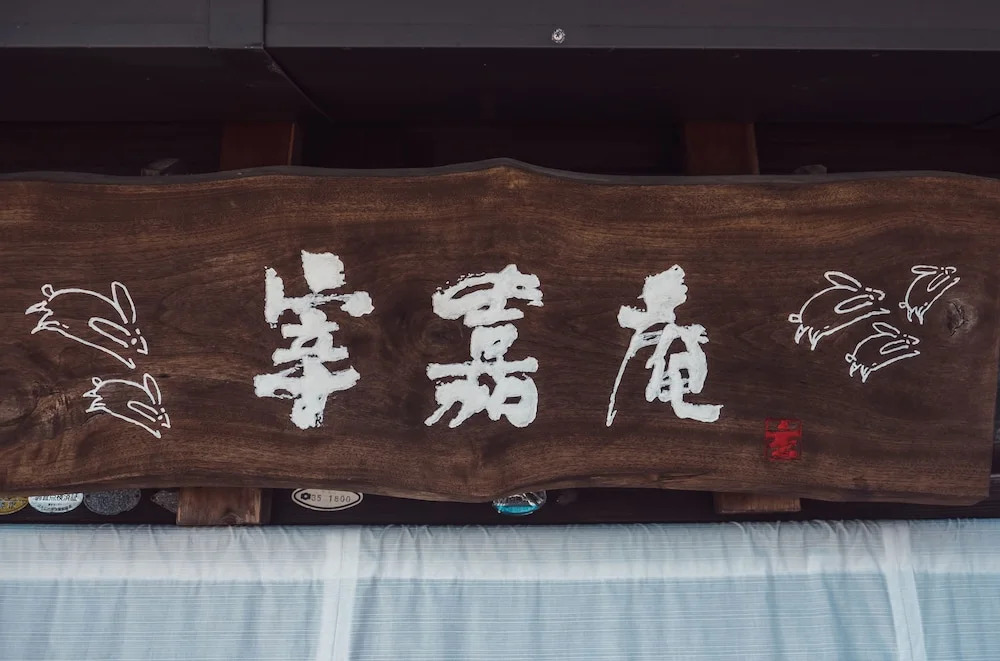 峯嘉庵
35 1800